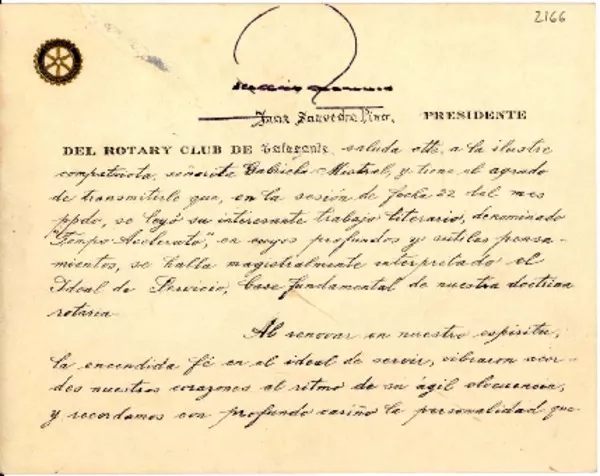 2166
Juan Saavedra Pino. PRESIDENTE
DEL ROTARY CLUB DE Talagante, saluda atte. a la ilustre
compatriota, señorita Gabriela Mistral, y tiene el agrado
de transmitirle que, en la sesión de fecha 22 del mes
ppdo, se leyó su interesante trabajo literario, denominado
"Tempo Acelerato", en cuyos profundos y sutiles pensa-
mientos, se halla magistralmente interpretado el
Ideal de Servicio, base fundamental de nuestra doctrina
rotaria.
Al renovar en nuestro espíritu,
la encendida fé en el ideal de servir, vibraron acor-
des nuestros corazones al ritmo de su ágil elocuencia,
y recordamos con profundo cariño la personalidad que